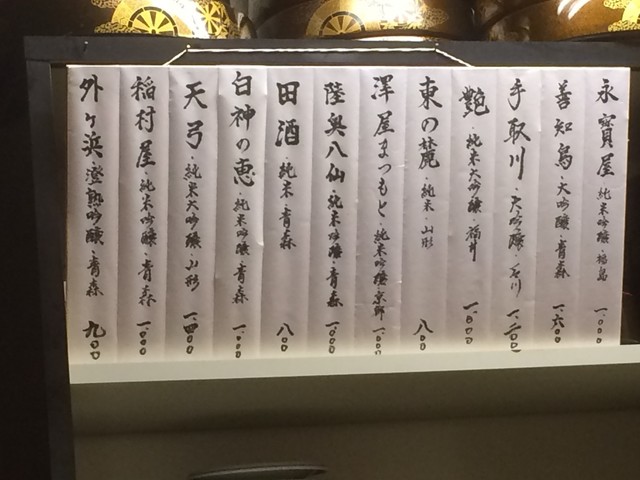 永寳屋 純米吟醸・福島 一、〇〇〇
善知鳥・大吟醸・青森 一、六〇〇
手取川・大吟醸・石川 一、二〇〇
艶・純米大吟醸・福井 一、〇〇〇
東の麓・純米・山形 八〇〇
澤屋まつもと・純米吟醸・京都 一、〇〇〇
陸奥八仙・純米吟醸・青森 一、〇〇〇
田酒・純米・青森 八〇〇
白神の恵・純米吟醸・青森 一、〇〇〇
天弓・純米大吟醸・山形 一、四〇〇
稲村屋・純米吟醸・青森 一、〇〇〇
外ヶ浜・澄熟吟醸・青森 九〇〇